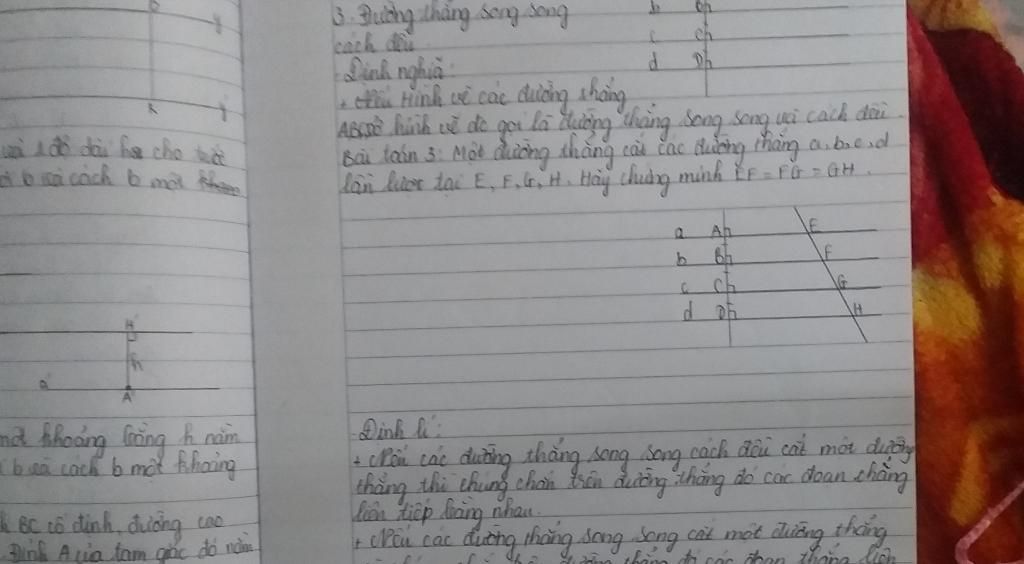 y
k
y'
độ dài h cho trước
b và cách b một
H
h
a'
A
một khoảng bằng h nằm
b và cách b một khoảng
BC cố định, đường cao
Đỉnh A của tam giác đó nằm
3. Đường thẳng song song
cách đều
Định nghĩa:
+ Hình vẽ các đường thẳng
hình vẽ đó gọi là đường thẳng song song và cách đều
Bài toán 3: Một đường thẳng cắt các đường thẳng a, b, c, d
lần lượt tại E, F, G, H. Hãy chứng minh EF = FG = GH.
b Bh
c Ch
d Dh
a Ah E
b Bh F
c Ch G
d Dh H
Định lí:
+ Nếu các đường thẳng song song cách đều cắt một đường
thẳng thì chúng chắn trên đường thẳng đó các đoạn thẳng
liên tiếp bằng nhau.
+ Nếu các đường thẳng song song cắt một đường thẳng
đường thẳng đó các đoạn thẳng liên